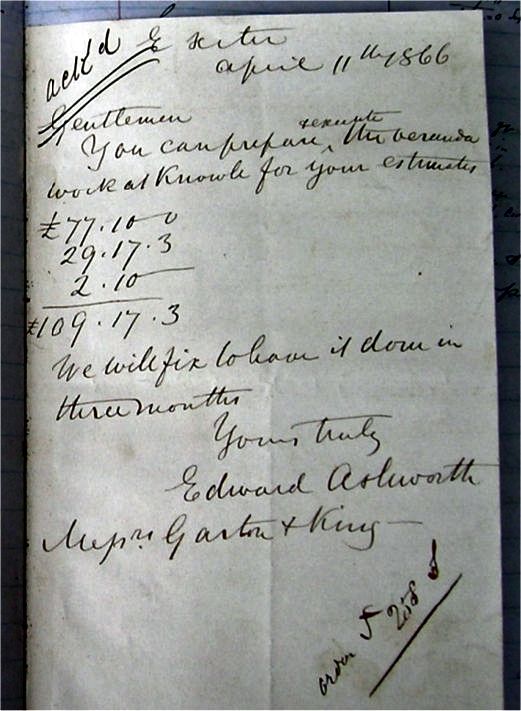 ack'd
Exeter
april 11th 1866
Gentlemen
You can prepare & execute the veranda
work at Knowle for your estimates
£77.10.0
29.17.3
2.10
£109.17.3
We will fix to have it done in
three months
Yours truly
Edward Ashworth
Messrs Garton & King
order 258